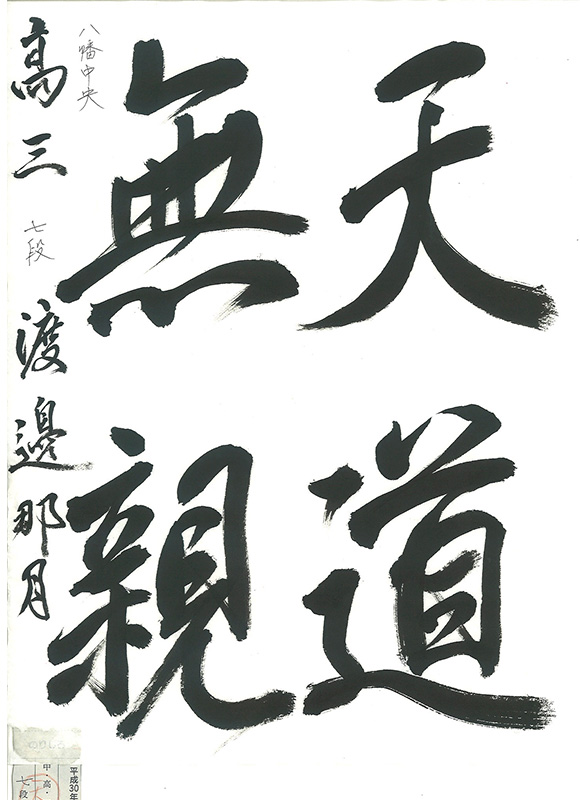 天道
無親
八幡中央
高三 七段 渡邉那月
平成30年
甲 高・
七段